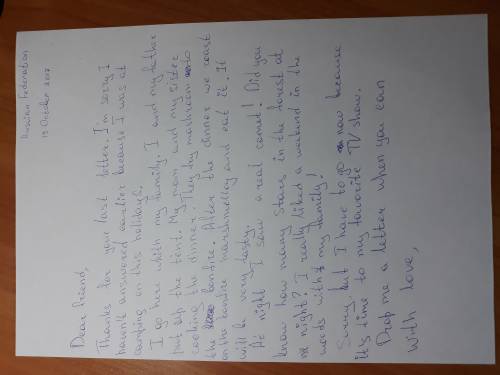 Russian Federation
19 October 2017
Dear friend,
Thanks for your last letter. I'm sorry I
haven't answered earlier because I was at
camping on this holidays.
I go here with my family. I and my father
put up the tent. My mom and my sister
cooking the dinner. They fry mashroom onto
the bonfire. After the dinner we roast
on the bonfire marshmelloy and eat it. It
will be very tasty.
At night I saw a real comet! Did you
know how many stars in the forest at
night? I really liked a weekend in the
woods with my family!
Sorry, but I have to go now because
it's time to my favorite TV show.
Drop me a letter when you can
With love,